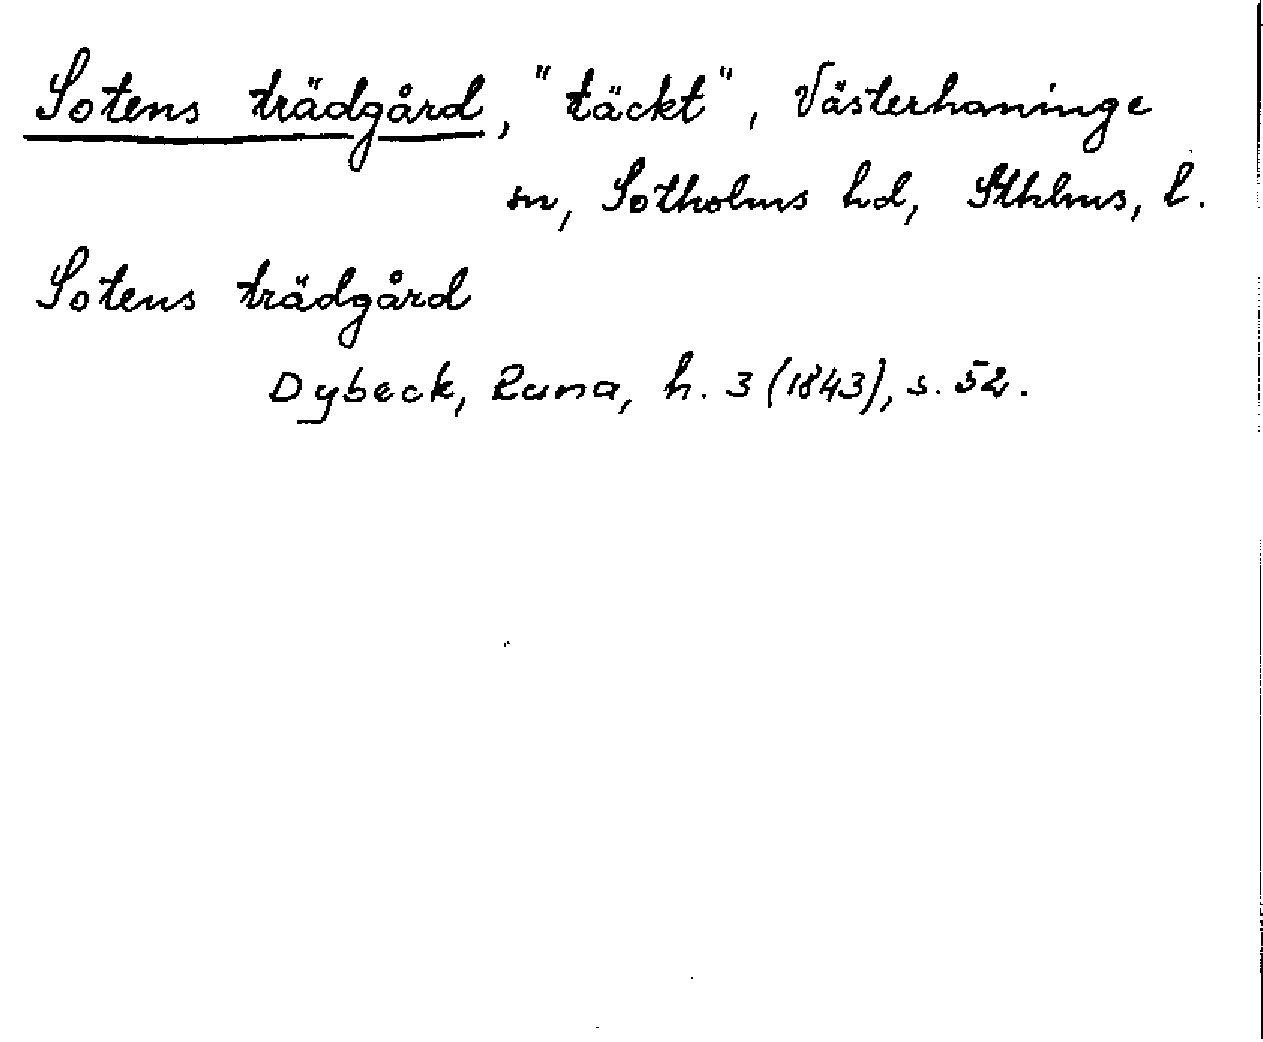 Sotens trädgård, "täckt", Västerhaninge
sn, Sotholms hd, Sthlms, l.
Sotens trädgård
Dybeck, Runa, h. 3 (1843), s. 52.